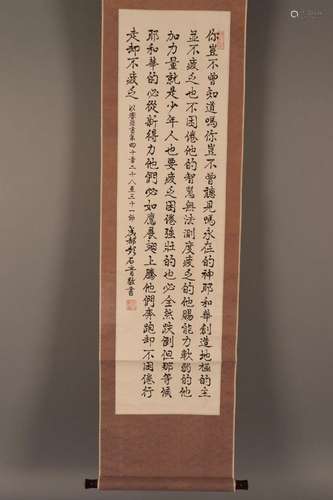 你豈不曾知道嗎你豈不曾聽見嗎永在的神耶和華創造地極的主
並不疲乏也不困倦他的智慧無法測度疲乏的他賜能力軟弱的他
加力量就是少年人也要疲乏困倦強壯的也必全然跌倒但那等候
耶和華的必從新得力他們必如鷹展翅上騰他們奔跑却不困倦行
走却不疲乏 以賽亞書第四十章二十八至三十一節 成都彭石青敬書